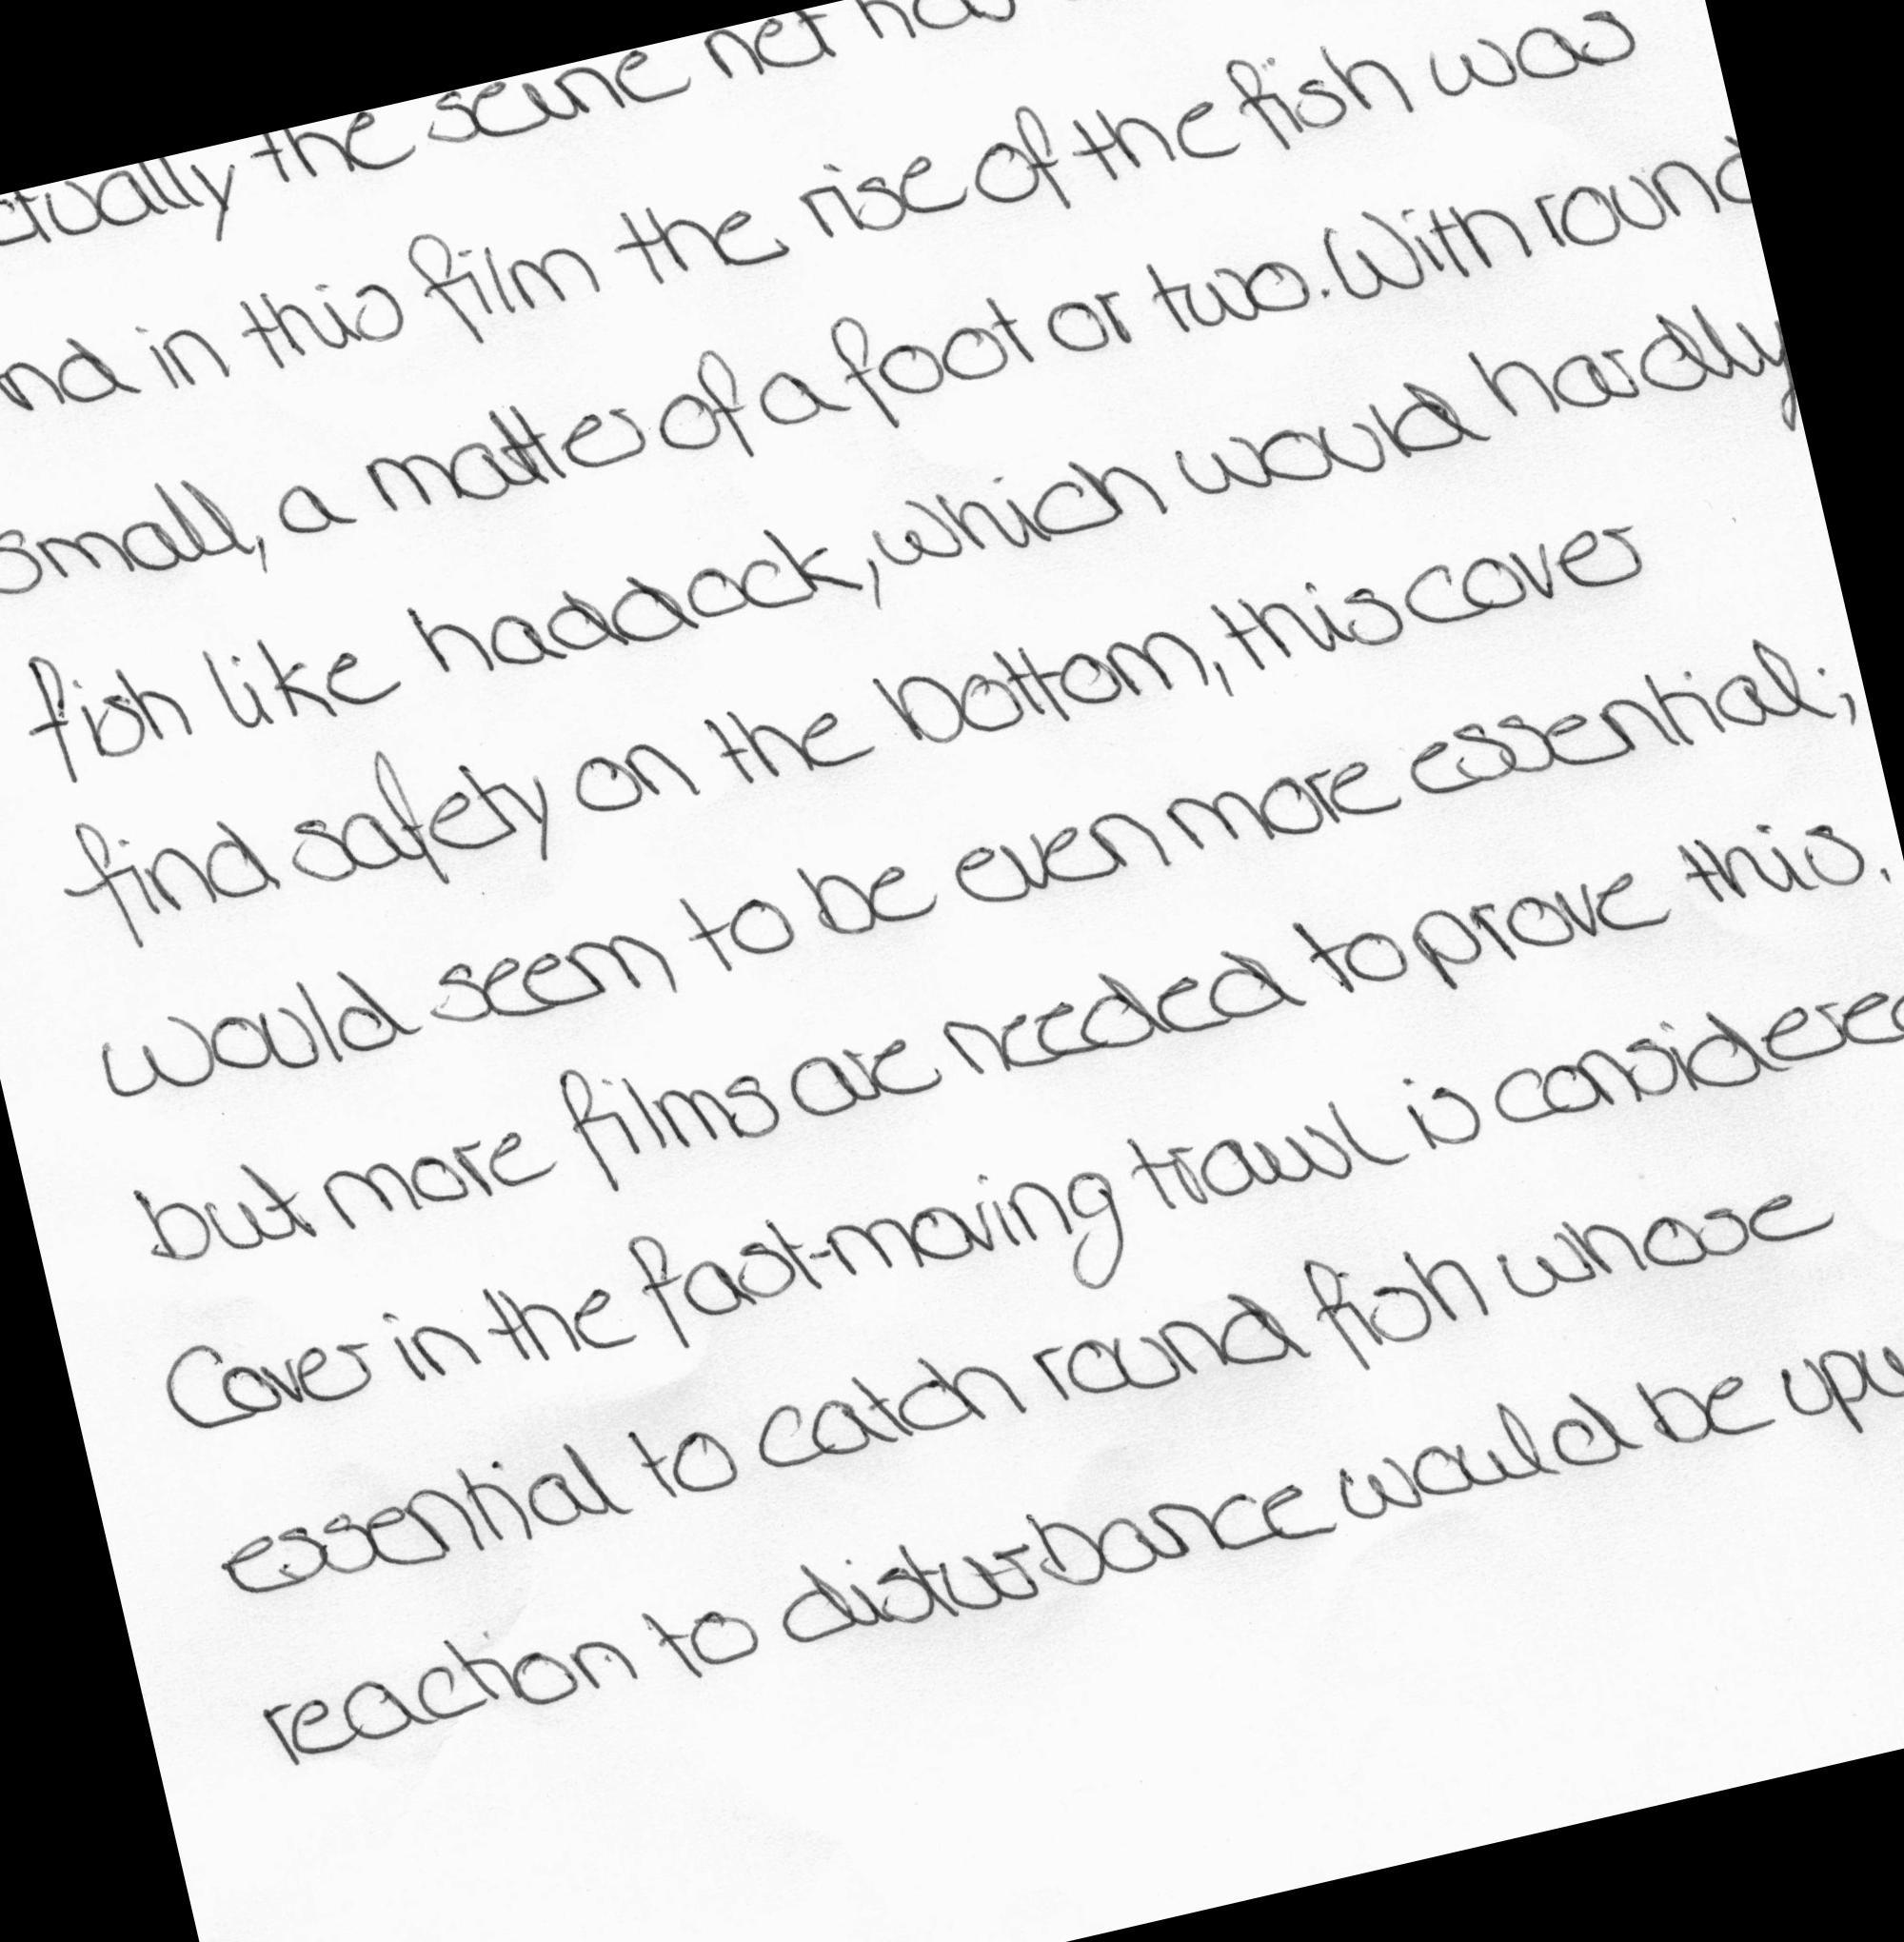 the seine net has
in this film the rise of the fish was
small, a matter of a foot or two. With round
fish like haddock, which would hardly
find safety on the bottom, this cover
would seem to be even more essential;
but more films are needed to prove this.
Cover in the fast-moving trawl is considered
essential to catch round fish whose
reaction to disturbance would be